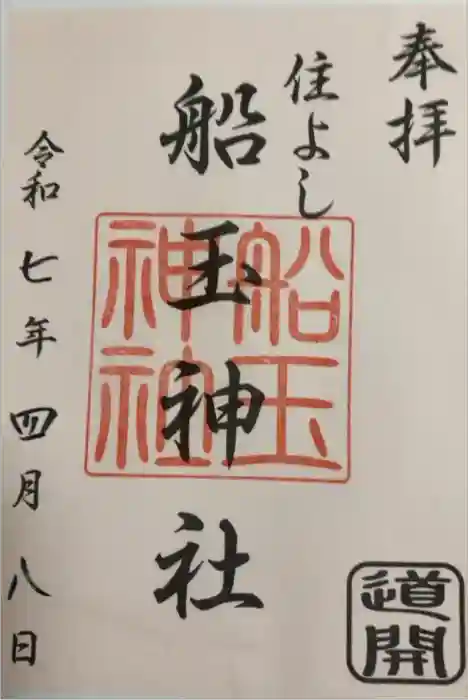 奉拝
住よし
船玉神社
船玉
神社
道開
令和七年四月八日